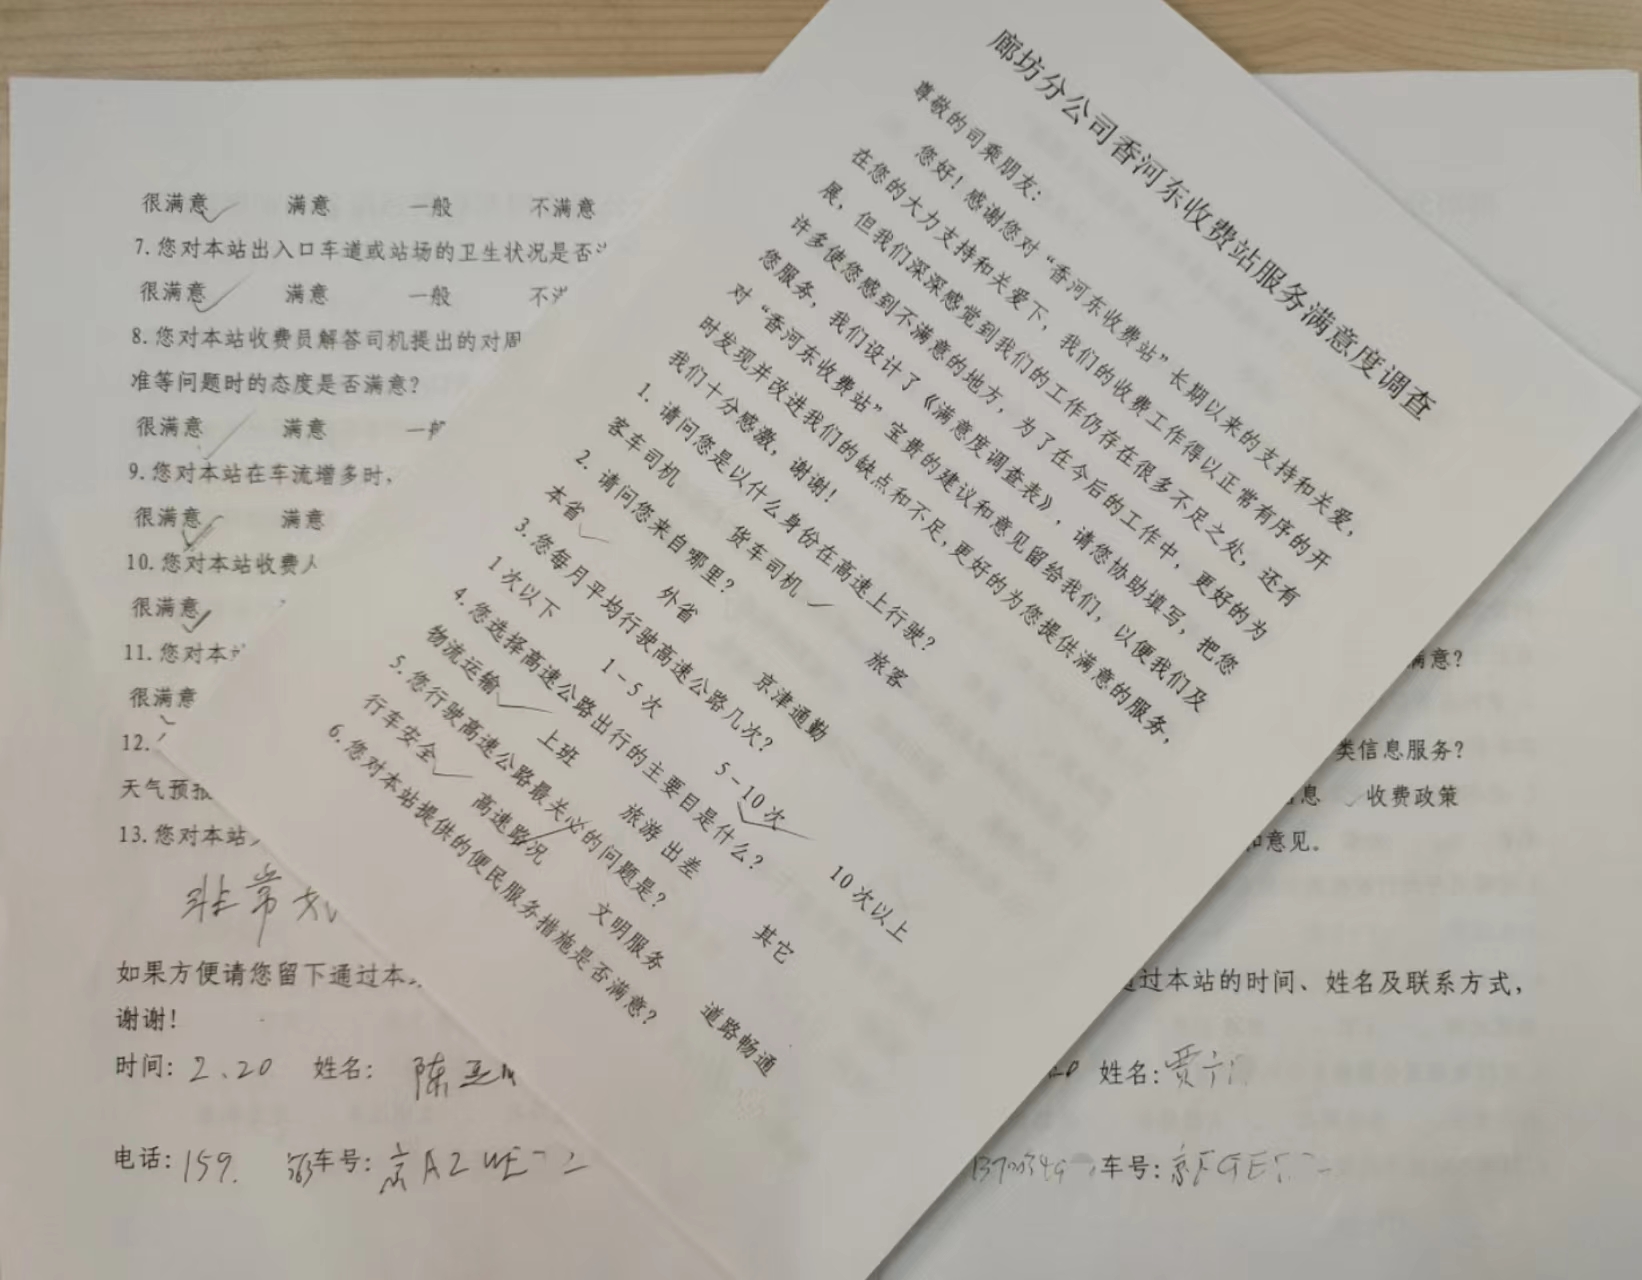 廊坊分公司香河东收费站服务满意度调查
尊敬的司乘朋友：
您好！感谢您对“香河东收费站”长期以来的支持和关爱，
在您的大力支持和关爱下，我们的收费工作得以正常有序的开
展，但我们深深感觉到我们的工作仍存在很多不足之处，还有
许多使您感到不满意的地方，为了在今后的工作中，更好的为
您服务，我们设计了《满意度调查表》，请您协助填写，把您
对“香河东收费站”宝费的建议和意见留给我们，以便我们及
时发现并改进我们的缺点和不足，更好的为您提供满意的服务，
我们十分感激，谢谢！
1. 请问您是以什么身份在高速上行驶？
客车司机 货车司机 ✓ 旅客
2. 请问您来自哪里？
本省 ✓ 外省 京津通勤
3. 您每月平均行驶高速公路几次？
1次以下 1-5次 5-10次 ✓ 10次以上
4. 您选择高速公路出行的主要目是什么？
物流运输 ✓ 上班 旅游 出差 其它
5. 您行驶高速公路最关心的问题是？
行车安全 ✓ 高速路况 ✓ 文明服务 道路畅通
6. 您对本站提供的便民服务措施是否满意？
很满意 ✓ 满意 一般 不满意
7. 您对本站出入口车道或站场的卫生状况是否
很满意 ✓ 满意 一般 不
8. 您对本站收费员解答司机提出的对周
准等问题时的态度是否满意？
很满意 ✓ 满意 一
9. 您对本站在车流增多时，
很满意 ✓ 满意
10. 您对本站收费
很满意 ✓
11. 您对本
很满意 ✓
12.
天气预
13. 您对本站
非常
如果方便请您留下通过本
谢谢！
时间：2、20 姓名：陈
电话：159. 车号：京A2
满意？
类信息服务？
息 ✓ 收费政策
意见。
过本站的时间、姓名及联系方式，
姓名：贾
车号：京F